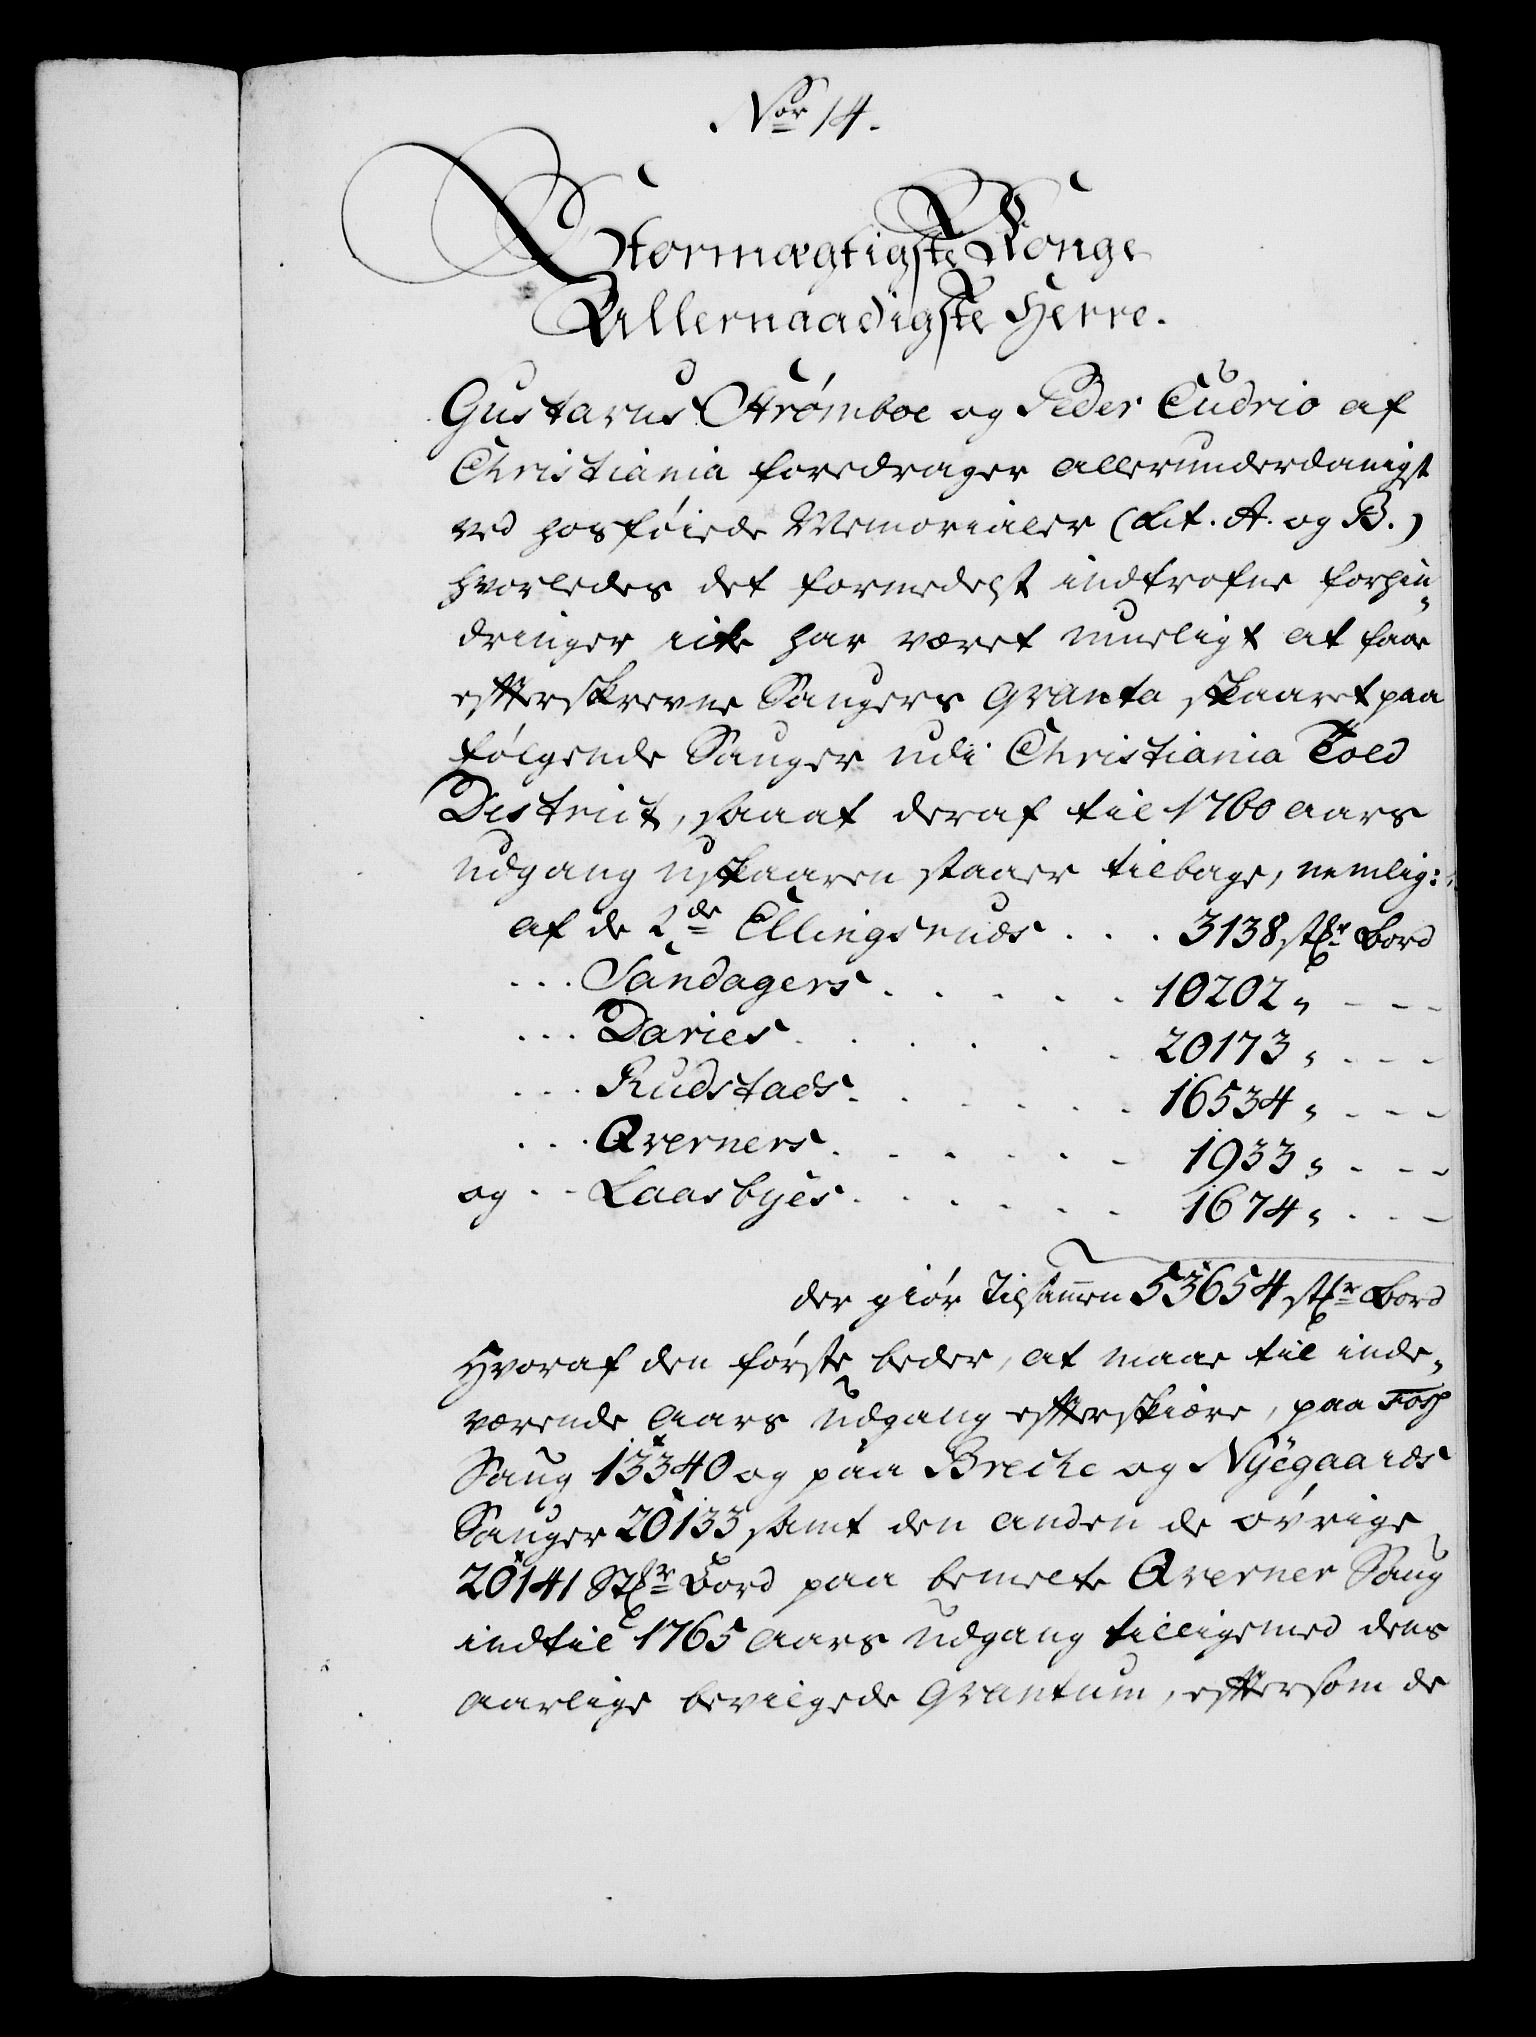 Nor 14.
Stormægtigste Konge
Allernaadigste Herre.
Gustavus Strømboe og Peder Cudrio af
Christiania foredrager allerunderdanigst
ved hosføiede Memorialer (Lit. A. og B.)
hvorledes det formedelst indtrofne forhin„
dringer icke har været mueligt at faae
efterskrevne Saugers Qvanta skaaret paa
følgende Sauger udi Christiania Told
District, saaat deraf til 1760 aars
udgang uskaaren staaer tilbage, nemlig:
af de 2de Ellingsruds . . . 3138 stkr Bord
. . . Sandagers . . . . . 10202 „ - - -
. . . Davies . . . . . . 20173 „ - - -
. . . Rudstads . . . . . . 16534 „ - - -
. . . Qverners . . . . . . 1933 „ - - -
og - - Laasbyes . . . . . . 1674 „ - - -
der giør Tilsammen 53654 stkr Bord
Hvoraf den første beder, at maae til inde„
værende Aars udgang efterskiære, paa Foss
Saug 13340 og paa Brecke og Nyegaards
Sauger 20133 samt den anden de øvrige
20141 Stkr Bord paa bemelte Qverner Saug
indtil 1765 Aars udgang tilligemed dens
aarlige bevilgede Qvantum, eftersom de